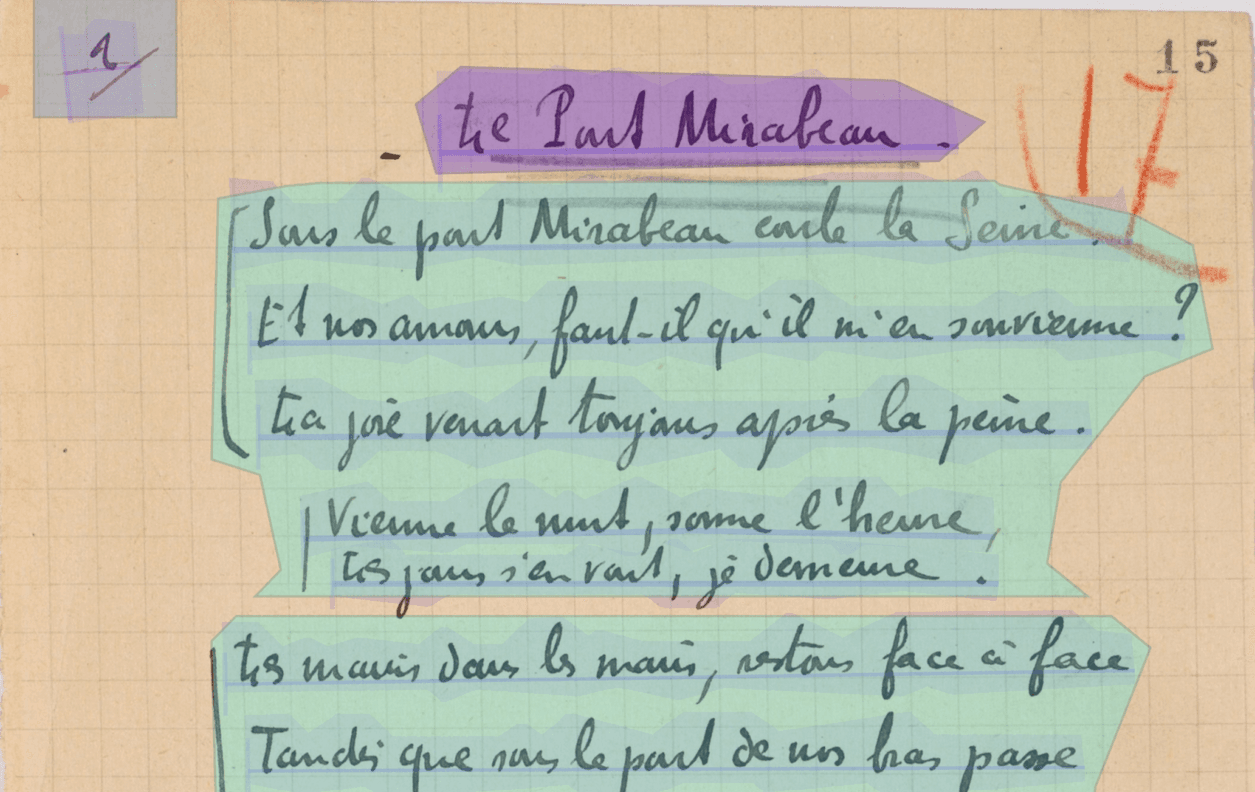 1
15
17
- Le Pont Mirabeau.
Sous le pont Mirabeau coule la Seine.
Et nos amours, faut-il qu'il m'en souvienne ?
La joie venait toujours après la peine.
Vienne la nuit, sonne l'heure,
Les jours s'en vont, je demeure.
Les mains dans les mains, restons face à face
Tandis que sous le pont de nos bras passe